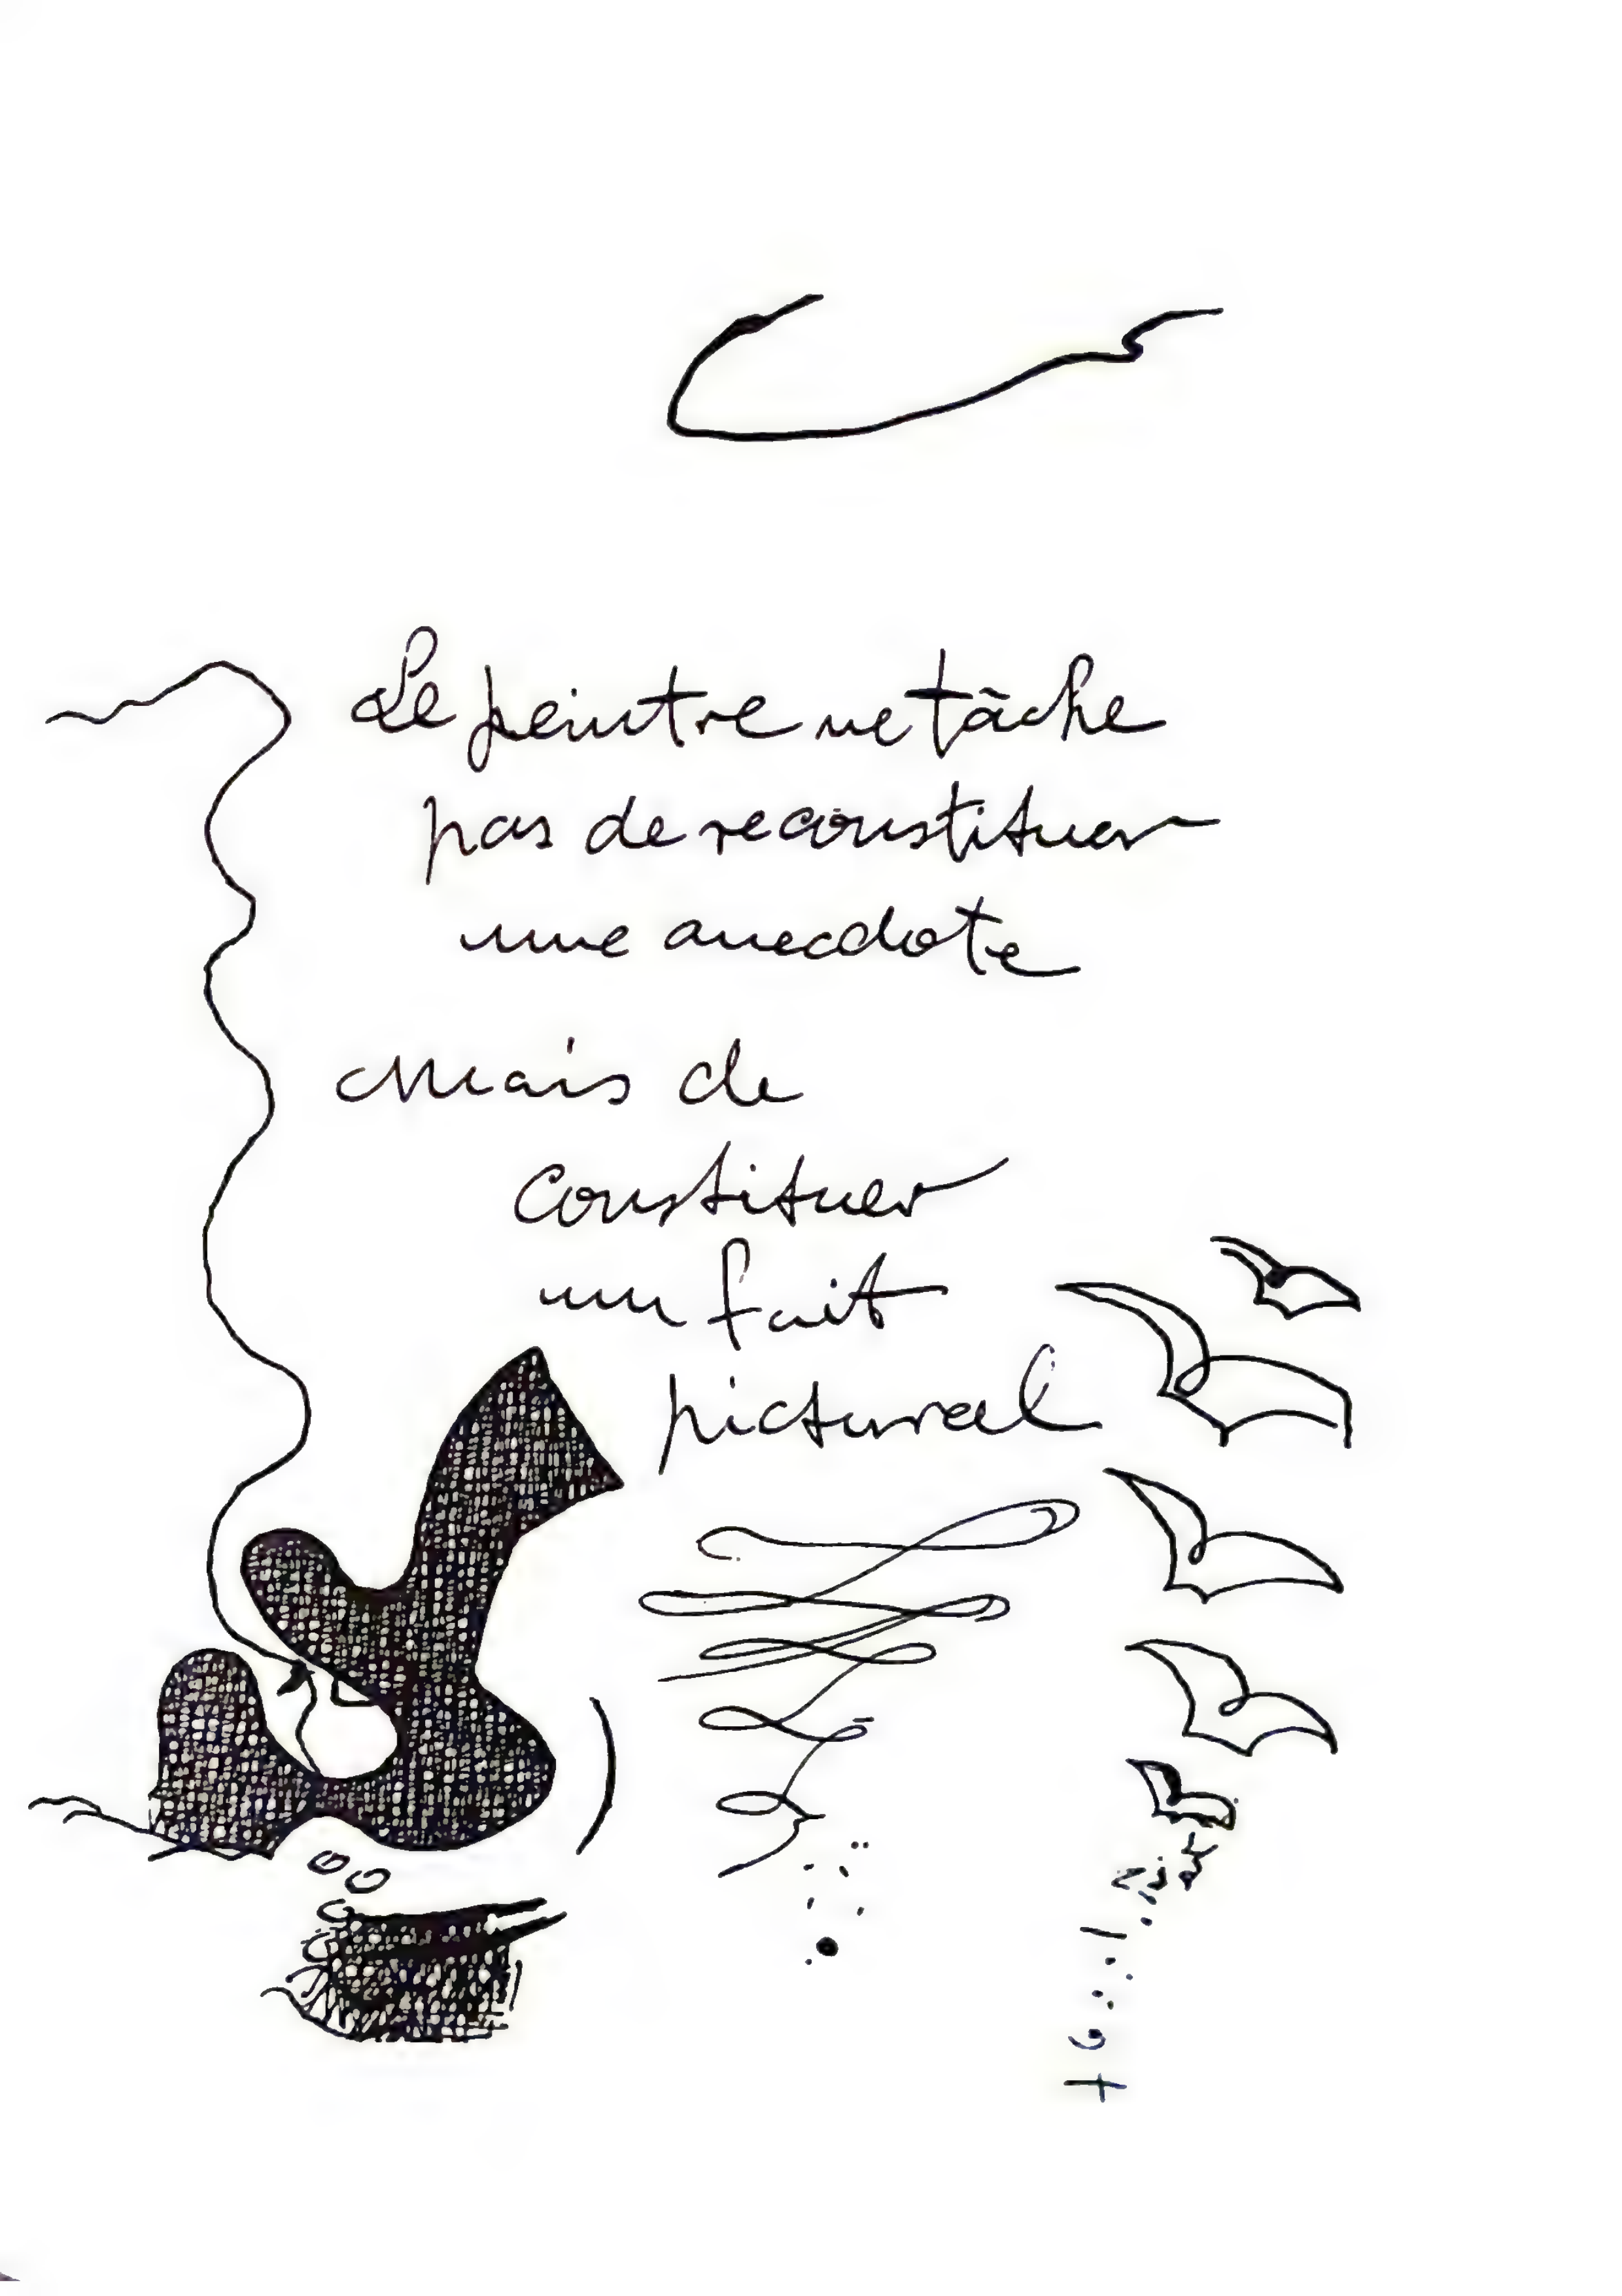 Le peintre ne tâche
pas de reconstituer
une anecdote
Mais de
constituer
un fait
pictural